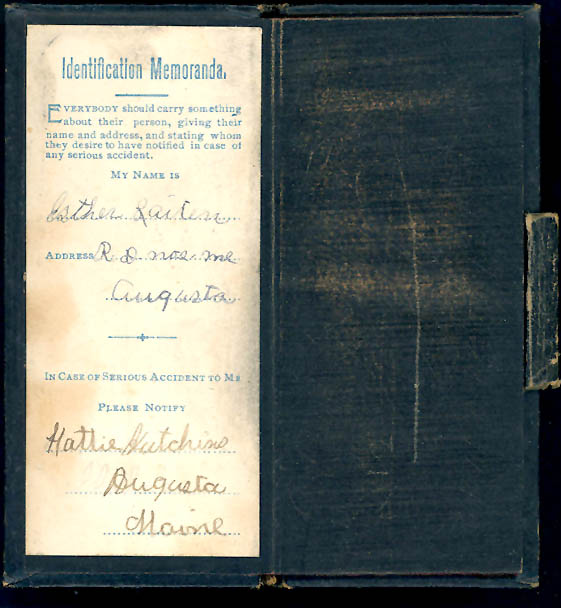 Identification Memoranda.
EVERYBODY should carry something
about their person, giving their
name and address, and stating whom
they desire to have notified in case of
any serious accident.
MY NAME IS
Esther
ADDRESS R D no
Augusta
IN CASE OF SERIOUS ACCIDENT TO ME
PLEASE NOTIFY
Hattie Hutchins
Augusta
Maine